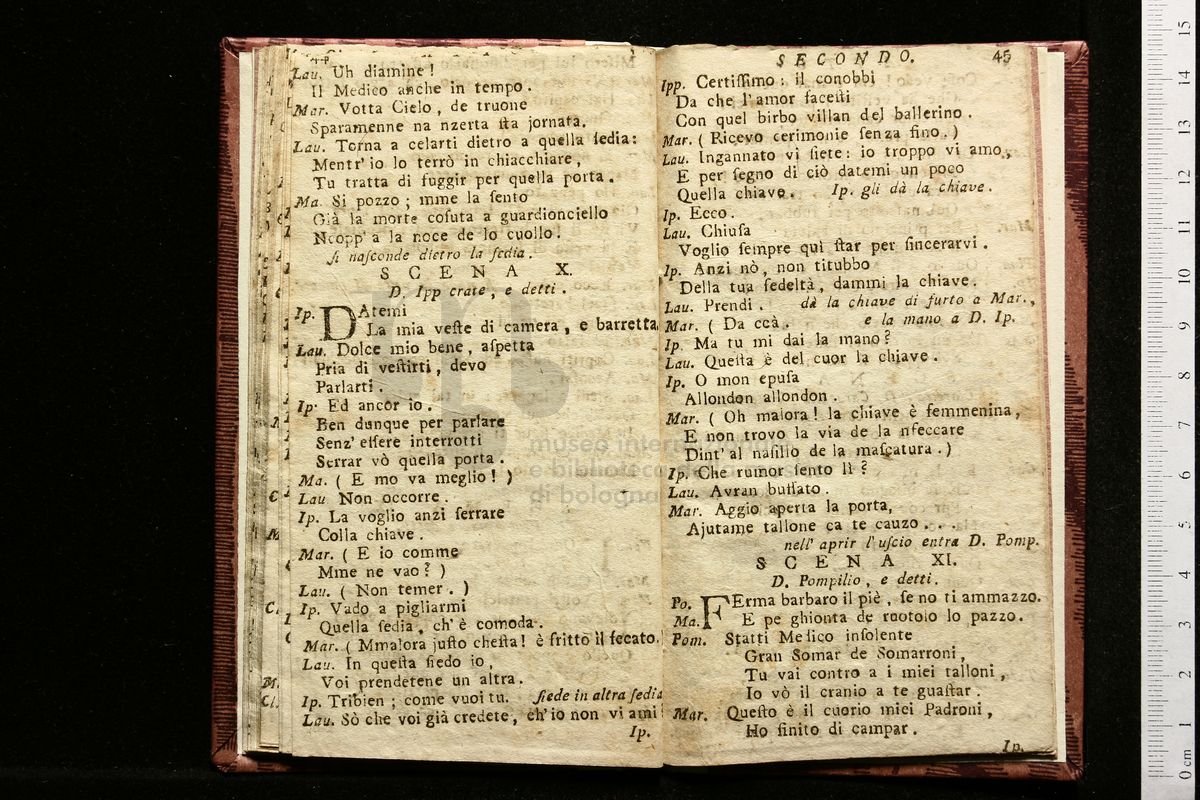 Lau. Uh diamine!
Il Medico anche in tempo.
Mar. Votta Cielo, de truone
Sparamenne na nzerta sta jornata.
Lau. Torna a celarti dietro a quella sedia:
Mentr' io lo terrò in chiacchiare,
Tu tratta di fuggir per quella porta.
Ma. Si pozzo; mme la sento
Già la morte cosuta a guardionciello
Ncopp' a la noce de lo cuollo.
si nasconde dietro la sedia.
SCENA X.
D. Ipp crate, e detti.
Ip. DAtemi
La mia veste di camera, e barretta
Lau. Dolce mio bene, aspetta
Pria di vestirti, devo
Parlarti.
Ip. Ed ancor io.
Ben dunque per parlare
Senz' essere interrotti
Serrar vò quella porta.
Ma. ( E mo va meglio! )
Lau Non occorre.
Ip. La voglio anzi serrare
Colla chiave.
Mar. ( E io comme
Mme ne vao? )
Lau. ( Non temer. )
Ip. Vado a pigliarmi
Quella sedia, ch' è comoda.
Mar. ( Mmalora justo chesta! è fritto il fecato.
Lau. In questa siedo io,
Voi prendetene un altra.
Ip. Tribien; come vuoi tu. siede in altra sedia
Lau. Sò che voi già credete, ch' io non vi ami
Ip.
SECONDO. 45
Ipp. Certissimo: il conobbi
Da che l'amor facesti
Con quel birbo villan del ballerino.
Mar. ( Ricevo cerimonie senza fino. )
Lau. Ingannato vi siete: io troppo vi amo,
E per segno di ciò datemi un poco
Quella chiave. Ip. gli dà la chiave.
Ip. Ecco.
Lau. Chiusa
Voglio sempre quì star per sincerarvi.
Ip. Anzi nò, non titubbo
Della tua fedeltà, dammi la chiave.
Lau. Prendi. dà la chiave di furto a Mar.,
Mar. ( Da ccà. e la mano a D. Ip.
Ip. Ma tu mi dai la mano?
Lau. Questa è del cuor la chiave.
Ip. O mon epusa
Allondon allondon.
Mar. ( Oh malora! la chiave è femmenina,
E non trovo la via de la nfeccare
Dint' al nasillo de la mascatura. )
Ip. Che rumor sento lì?
Lau. Avran bussato.
Mar. Aggio aperta la porta,
Ajutame tallone ca te cauzo...
nell' aprir l'uscio entra D. Pomp.
SCENA XI.
D. Pompilio, e detti.
Po. FErma barbaro il piè, se no ti ammazzo.
Ma. E pe ghionta de ruotolo lo pazzo.
Pom. Statti Medico insolente
Gran Somar de Somarroni,
Tu vai contro a i miei talloni,
Io vò il cranio a te guastar.
Mar. Questo è il cuorio miei Padroni,
Ho finito di campar.
Ip.